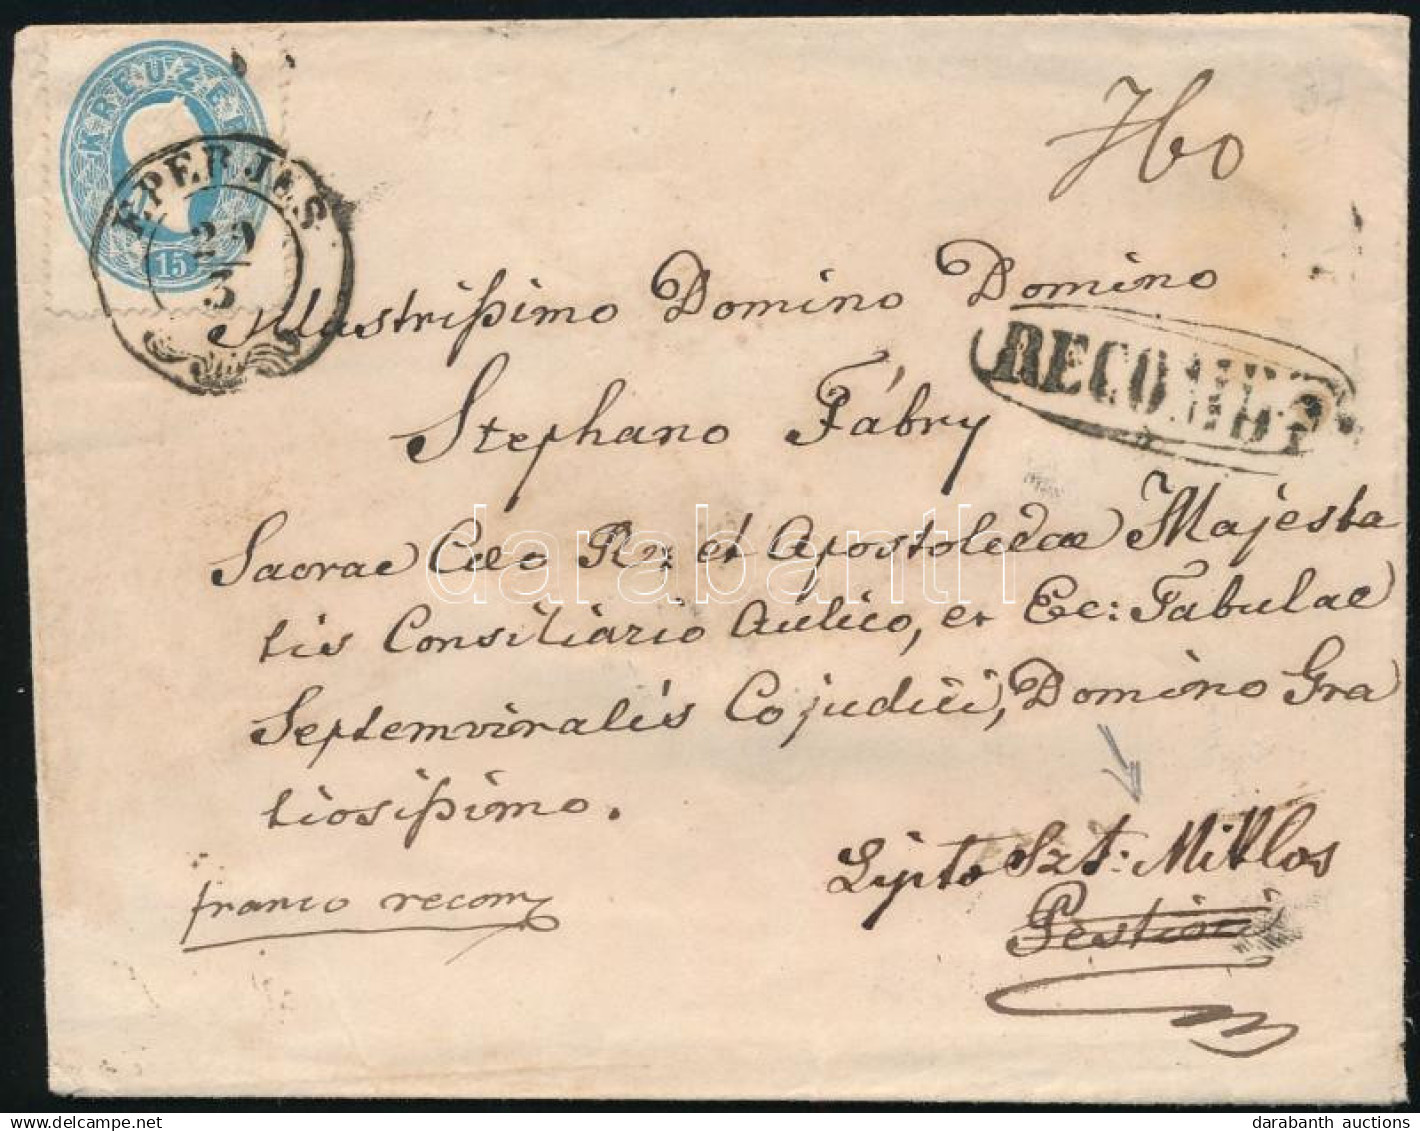 KREUZER
15
EPERJES
29
3
760
Illustrißimo Domino Domino
RECOMD?
Stephano Fábry
Sacrae Caeo Rx et Apostolicae Majesta
tis Consiliario Aulico, et Ec: Tabulae
Septemviralis Cojudici, Domino Gra
tiosißimo.
Lipto Szt: Miklos
franco recom
Pestini
darabanth
darabanth auctions